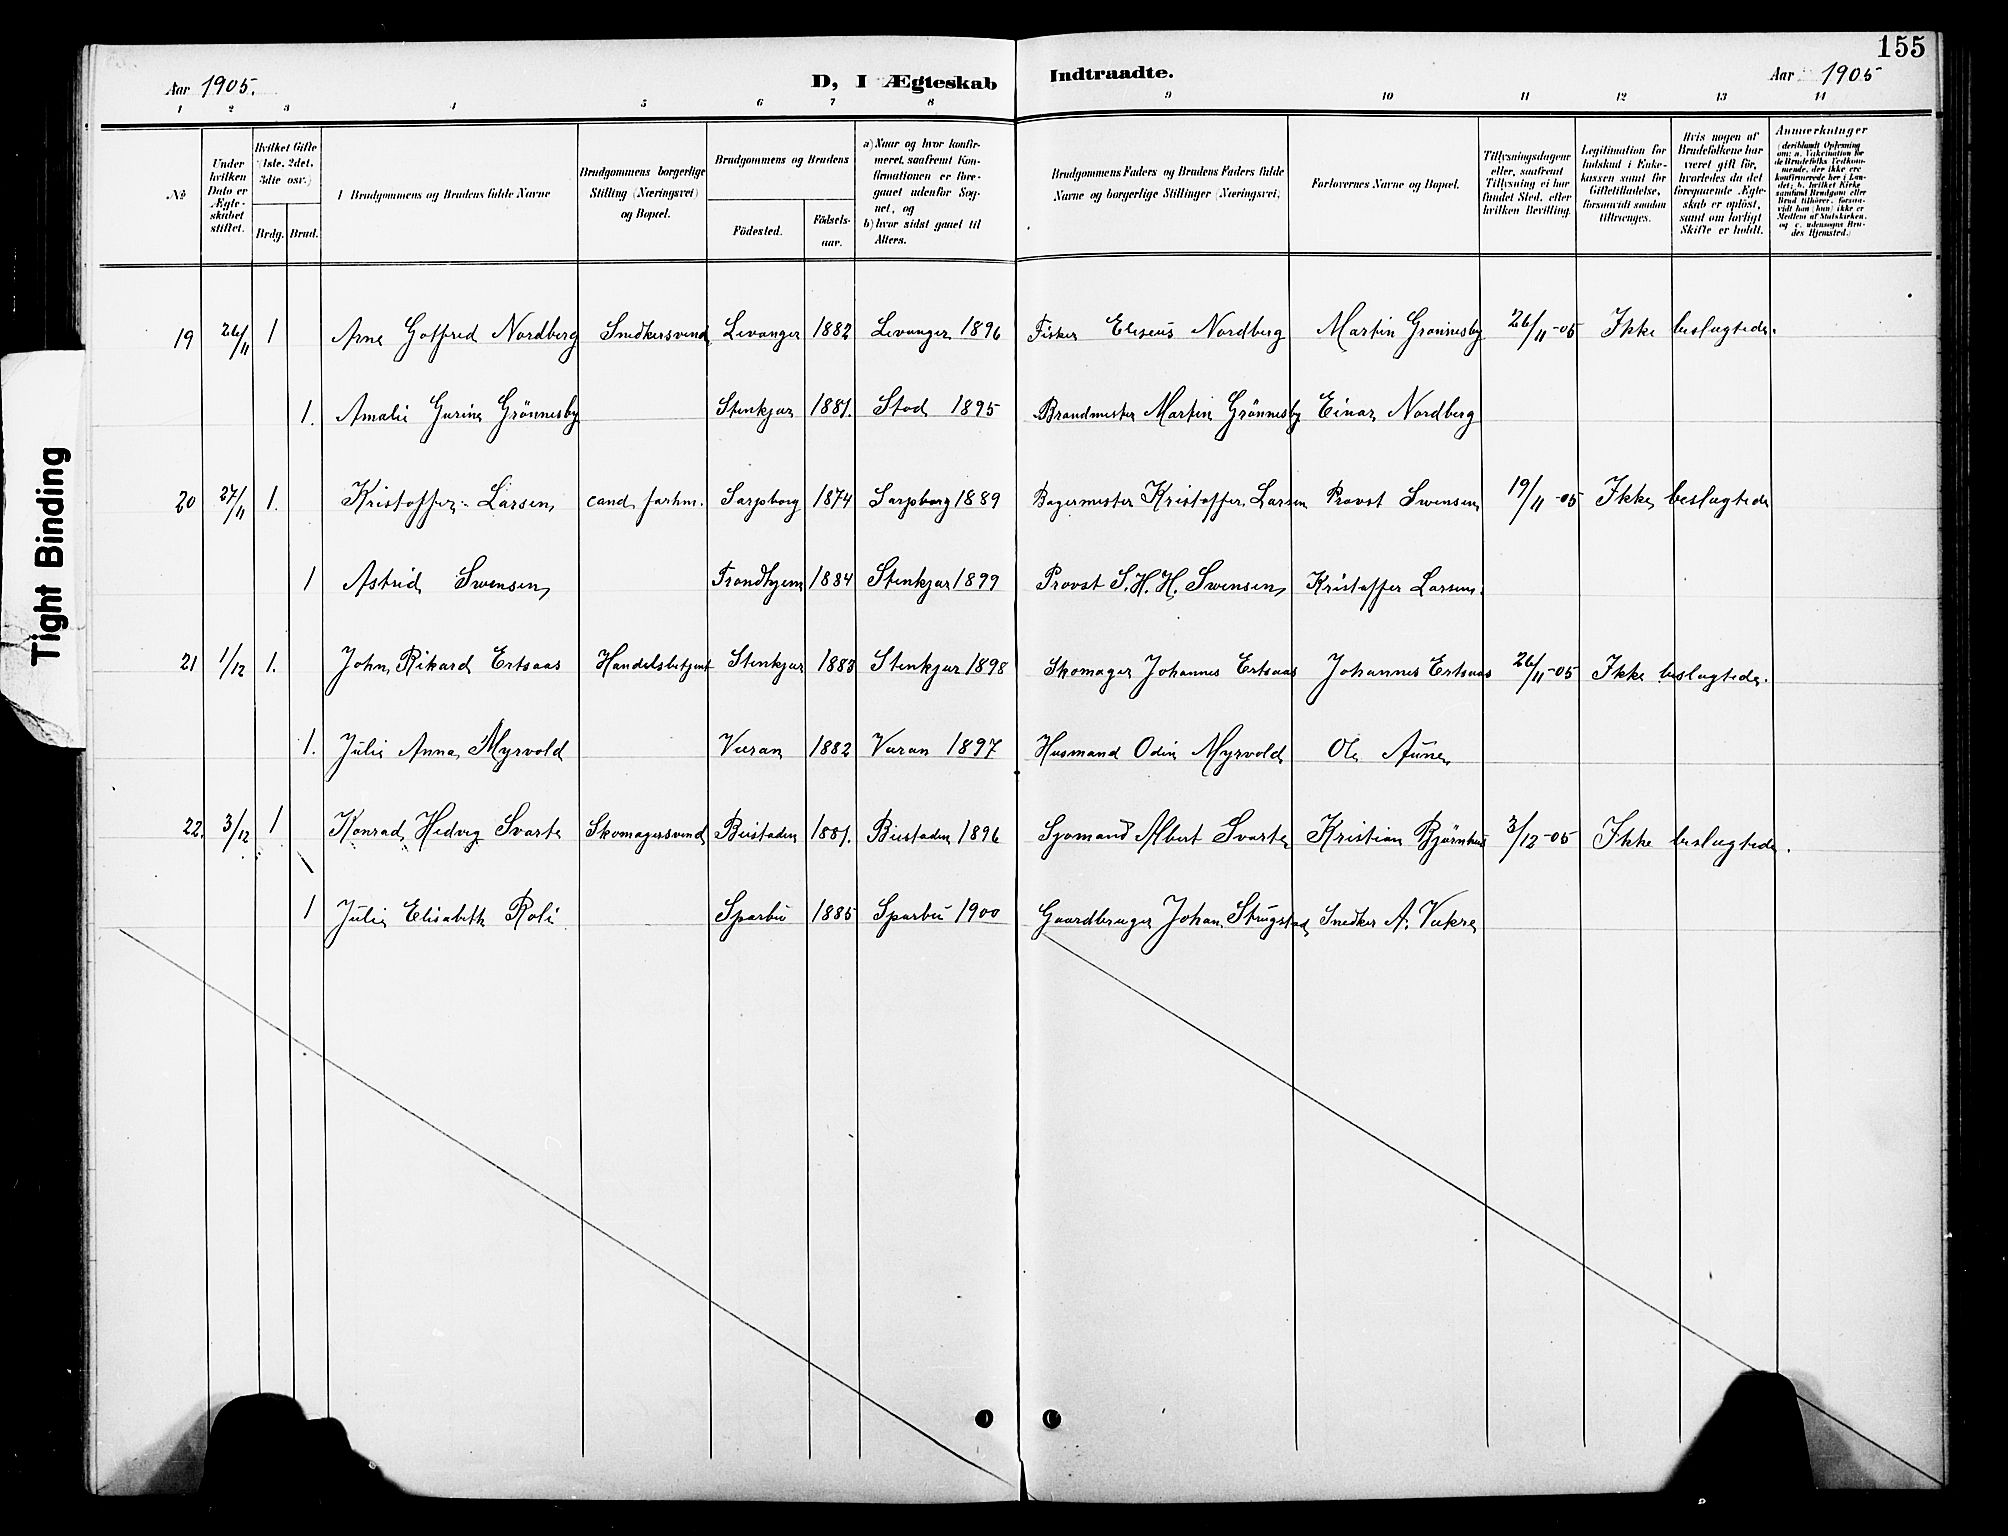 155
Aar 1905.
D, I Ægteskab
Indtraadte.
Aar 1905
1 2 3 4 5 6 7 8 9 10 11 12 13 14
№
Under hvilken Dato er Ægteskabet stiftet.
Hvilket Gifte (1ste, 2det, 3die osv.)
Brdg. Brud.
Brudgommens og Brudens fulde Navne
Brudgommens borgerlige Stilling (Næringsvei) og Bopæl.
Brudgommens og Brudens
Födested.
Födsels-aar.
a) Naar og hvor konfirmeret, saafremt Konfirmationen er foregaaet udenfor Sognet, og
b) hvor sidst gaaet til Alters.
Brudgommens Faders og Brudens Faders fulde Navne og borgerlige Stillinger (Næringsvei).
Forlovernes Navne og Bopæl.
Tillysningsdagene eller, saafremt Tillysning ei har fundet Sted, efter hvilken Bevilling.
Legitimation for Indskud i Enkekassen samt for Giftetilladelse, forsaavidt saadan tiltrænges.
Hvis nogen af Brudefolkene har været gift för, hvorledes da det foregaaende Ægteskab er oplöst, samt om lovligt Skifte er holdt.
Anmærkninger (deriblandt Oplysning om: a. Vakcination for de Brudefolks Vedkommende, der ikke ere konfirmerede her i Landet; b. hvilket Kirkesamfund Brudgom eller Brud tilhörer, forsaavidt han (hun) ikke er Medlem af Statskirken, og c. udensogns Brudes Hjemsted.)
19 26/11 1 Arne Gotfred Nordberg Snedkersvend Levanger 1882 Levanger 1896 Fisker Eliseus Nordberg Martin Grønnesby 26/11-05 Ikke beslægtede.
1. Amalie Gurine Grönnesby Stenkjær 1881. Stod 1895 Brandmester Martin Grönnesby Einar Nordberg
20 27/11 1. Kristoffer Larsen cand. farhm. Sarpborg 1874 Sarpborg 1889 Bagermester Kristoffer Larsen Provst Swensen 19/11-05 Ikke beslægtede
1 Astrid Swensen Trondhjem 1884 Stenkjær 1899 Provst S. H. H. Swensen Kristoffer Larsen.
21 1/12 1. John Rikard Ertsaas Handelsbetjent Stenkjær 1883 Stenkjær 1898 Skomager Johannes Ertsaas Johannes Ertsaas 26/11-05 Ikke beslægtede.
1. Julie Anna Myrvold Væran 1882 Væran 1897 Husmand Odin Myrvold Ole Aune
22. 3/12 1 Konrad Hedvig Svarte Skomagersvend Beistaden 1881. Beistaden 1896 Sjomand Albert Svarte Kristian Bjørnhus 3/12-05 Ikke beslægtede.
1 Julie Elisabeth Roli Sparbu 1885 Sparbu 1900 Gaardbruger Johan Strugstad Snedker A. Vækre
Tight Binding